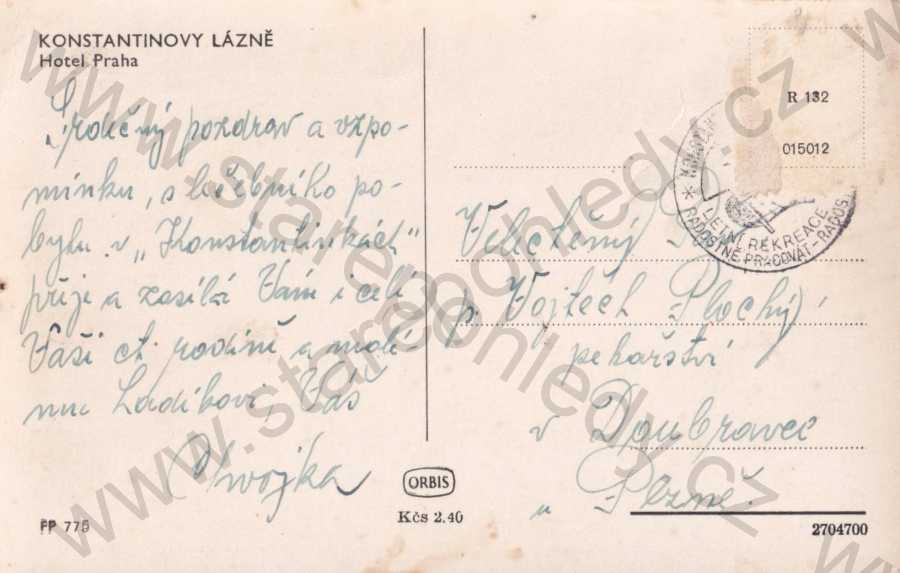 KONSTANTINOVY LÁZNĚ
Hotel Praha
Srdečný pozdrav a vzpo-
mínku, s léčebního po-
bytu v „Konstantinkách"
přeje a zasílá Vám i celé
Vaší ct. rodině a malé
mu Ladíkovi, Váš
ORBIS
Kčs 2.40
PP 775
R 132
015012
LETNÍ REKREACE
RADOSTNĚ PRACOVAT - RADOS
Velectěný
p. Vojtěch Plochý,
pekařství
v Doubravce
u Plzně.
2704700
www.starepohledy.cz